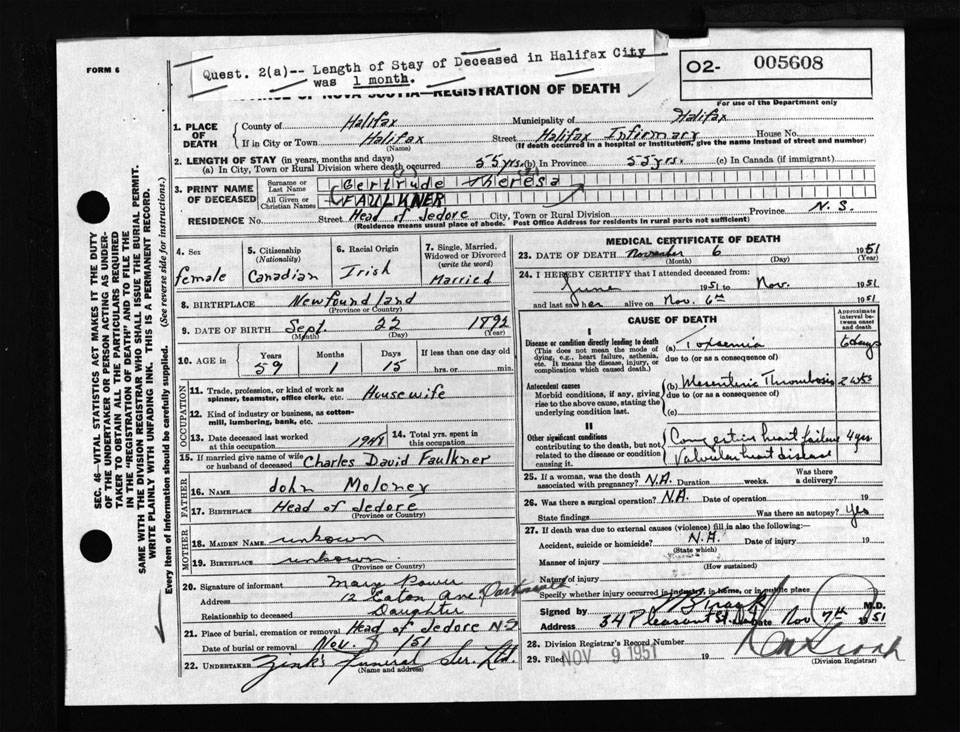 FORM 6
Quest. 2(a)-- Length of Stay of Deceased in Halifax City
was 1 month.
PROVINCE OF NOVA SCOTIA—REGISTRATION OF DEATH
O2- 005608
For use of the Department only
1. PLACE OF DEATH
County of Halifax Municipality of Halifax
If in City or Town Halifax Street Halifax Infirmary House No.
(Name) (If death occurred in a hospital or institution, give the name instead of street and number)
2. LENGTH OF STAY (in years, months and days)
(a) In City, Town or Rural Division where death occurred 55 yrs. (b) In Province 55 yrs. (c) In Canada (if immigrant)
3. PRINT NAME OF DECEASED
Surname or Last Name Gertrude Theresa
All Given or Christian Names FAULKNER
RESIDENCE No. Street Head of Jedore City, Town or Rural Division Province N. S.
(Residence means usual place of abode. Post Office Address for residents in rural parts not sufficient)
4. Sex
female
5. Citizenship
(Nationality)
Canadian
6. Racial Origin
Irish
7. Single, Married, Widowed or Divorced
(write the word)
Married
8. BIRTHPLACE Newfoundland
(Province or Country)
9. DATE OF BIRTH Sept. 22 1892
(Month) (Day) (Year)
10. AGE in Years Months Days If less than one day old
59 1 15 hrs. or min.
OCCUPATION
11. Trade, profession, or kind of work as spinner, teamster, office clerk, etc. Housewife
12. Kind of industry or business, as cotton-mill, lumbering, bank, etc.
13. Date deceased last worked at this occupation 1948 14. Total yrs. spent in this occupation
15. If married give name of wife or husband of deceased Charles David Faulkner
FATHER
16. NAME John Moloney
17. BIRTHPLACE Head of Jedore
(Province or Country)
MOTHER
18. MAIDEN NAME unkown
19. BIRTHPLACE unkown
(Province or Country)
20. Signature of informant Mary Power
Address 12 Eaton Ave
Relationship to deceased Daughter
21. Place of burial, cremation or removal Head of Jedore N-S
Date of burial or removal Nov. 8 /51
22. UNDERTAKER Zink's Funeral Ser. Ltd.
(Name and address)
MEDICAL CERTIFICATE OF DEATH
23. DATE OF DEATH November 6 1951
(Month) (Day) (Year)
24. I HEREBY CERTIFY that I attended deceased from:
June 1951 to Nov. 1951
and last saw her alive on Nov. 6th 1951
CAUSE OF DEATH
Approximate interval between onset and death
I
Disease or condition directly leading to death
(This does not mean the mode of dying, e.g., heart failure, asthenia, etc. It means the disease, injury, or complication which caused death.)
(a) Toxaemia 6 days
due to (or as a consequence of)
Antecedent causes
Morbid conditions, if any, giving rise to the above cause, stating the underlying condition last.
(b) Mesenteric Thrombosis 2 wks
due to (or as a consequence of)
(c)
II
Other significant conditions
contributing to the death, but not related to the disease or condition causing it.
Congestive heart failure 4 yrs
Valvular heart disease
25. If a woman, was the death associated with pregnancy? N.A. Duration weeks. Was there a delivery?
26. Was there a surgical operation? N.A. Date of operation 19
State findings Was there an autopsy? Yes
27. If death was due to external causes (violence) fill in also the following:—
Accident, suicide or homicide? N.A. Date of injury 19
(State which)
Manner of injury
(How sustained)
Nature of injury
Specify whether injury occurred in industry, in home, or in public place
Signed by M.D.
Address 34 Pleasant St. Date Nov 7th 1951
28. Division Registrar's Record Number
29. Filed NOV 9 1951 19
(Division Registrar)
SEC. 46—VITAL STATISTICS ACT MAKES IT THE DUTY
OF THE UNDERTAKER OR PERSON ACTING AS UNDER-
TAKER TO OBTAIN ALL THE PARTICULARS REQUIRED
IN THE "REGISTRATION OF DEATH" AND TO FILE THE
SAME WITH THE DIVISION REGISTRAR WHO SHALL ISSUE THE BURIAL PERMIT.
WRITE PLAINLY WITH UNFADING INK. THIS IS A PERMANENT RECORD.
Every item of Information should be carefully supplied. (See reverse side for instructions.)